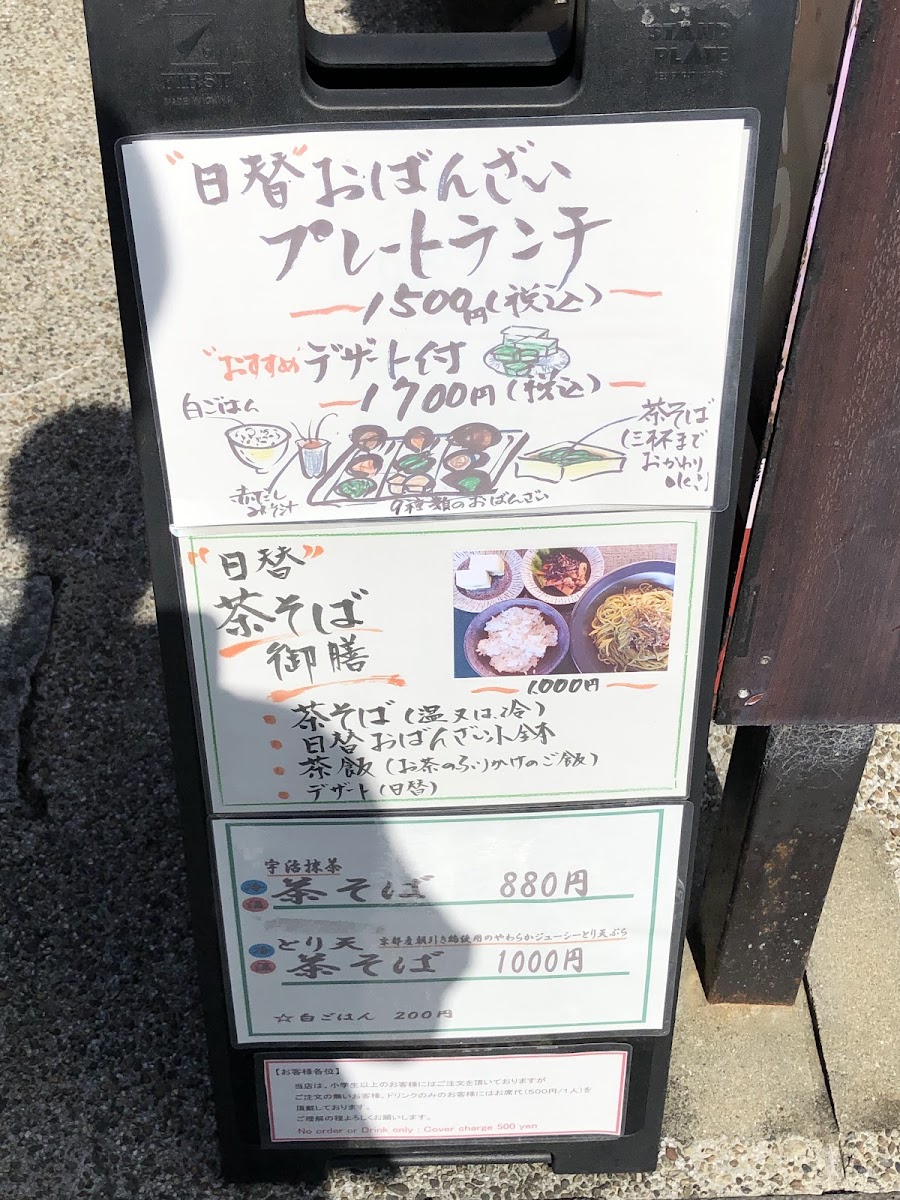 FIRST
STAND
PLATE
"日替"おばんざい
プレートランチ
1500円(税込)
"おすすめ デザート付
1700円(税込)
白ごはん
茶そば
(三杯まで
おかわり
ok!)
赤だし
みそ汁
9種類のおばんざい
"日替"
茶そば
御膳
1,000円
・茶そば(温又は、冷)
・日替おばんざい小鉢
・茶飯(お茶のふりかけのご飯)
・デザート(日替)
宇治抹茶
冷
温
茶そば 880円
冷
温
とり天 京都産朝引き鶏使用のやわらかジューシーとり天ぷら
茶そば 1000円
☆白ごはん 200円
【お客様各位】
当店は、小学生以上のお客様にはご注文を頂いておりますが
ご注文の無いお客様、ドリンクのみのお客様にはお席代(500円/1人)を
頂戴しております。
ご理解の程よろしくお願いします。
No order or Drink only : Cover charge 500 yen